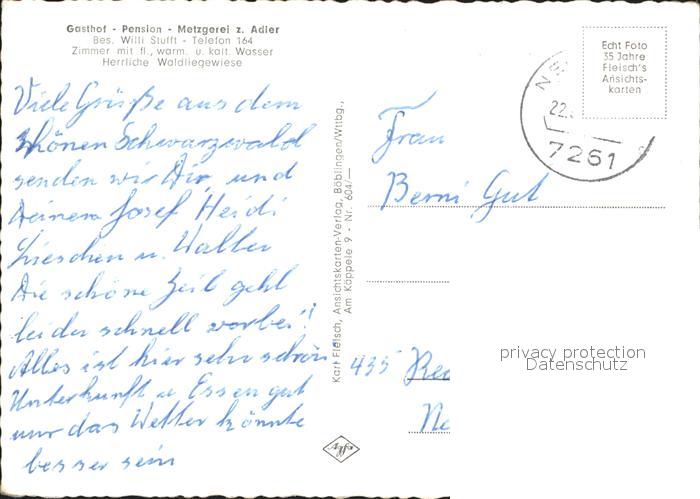 Gasthof - Pension - Metzgerei z. Adler
Bes. Willi Stufft - Telefon 164
Zimmer mit fl., warm. u. kalt. Wasser
Herrliche Waldliegewiese
Viele Grüße aus dem
schönen Schwarzwald
senden wir Dir, und
Deinem Josef Heidi
Lieschen u. Walter
Die schöne Zeit geht
leider schnell vorbei!
Alles ist hier sehr schön.
Unterkunft u Essen gut
nur das Wetter könnte
besser sein
Karl Fleisch, Ansichtskarten-Verlag, Böblingen/Wttbg.,
Am Käppele 9 - Nr. 604/—
Agfa
Echt Foto
35 Jahre
Fleisch's
Ansichts-
karten
22.
7261
Frau
Berni Gut
435 Rec
privacy protection
Datenschutz